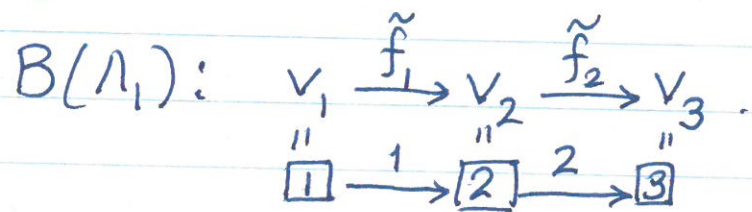 B(Λ₁): v₁ —f̃₁→ v₂ —f̃₂→ v₃.
" " "
1 —1→ 2 —2→ 3